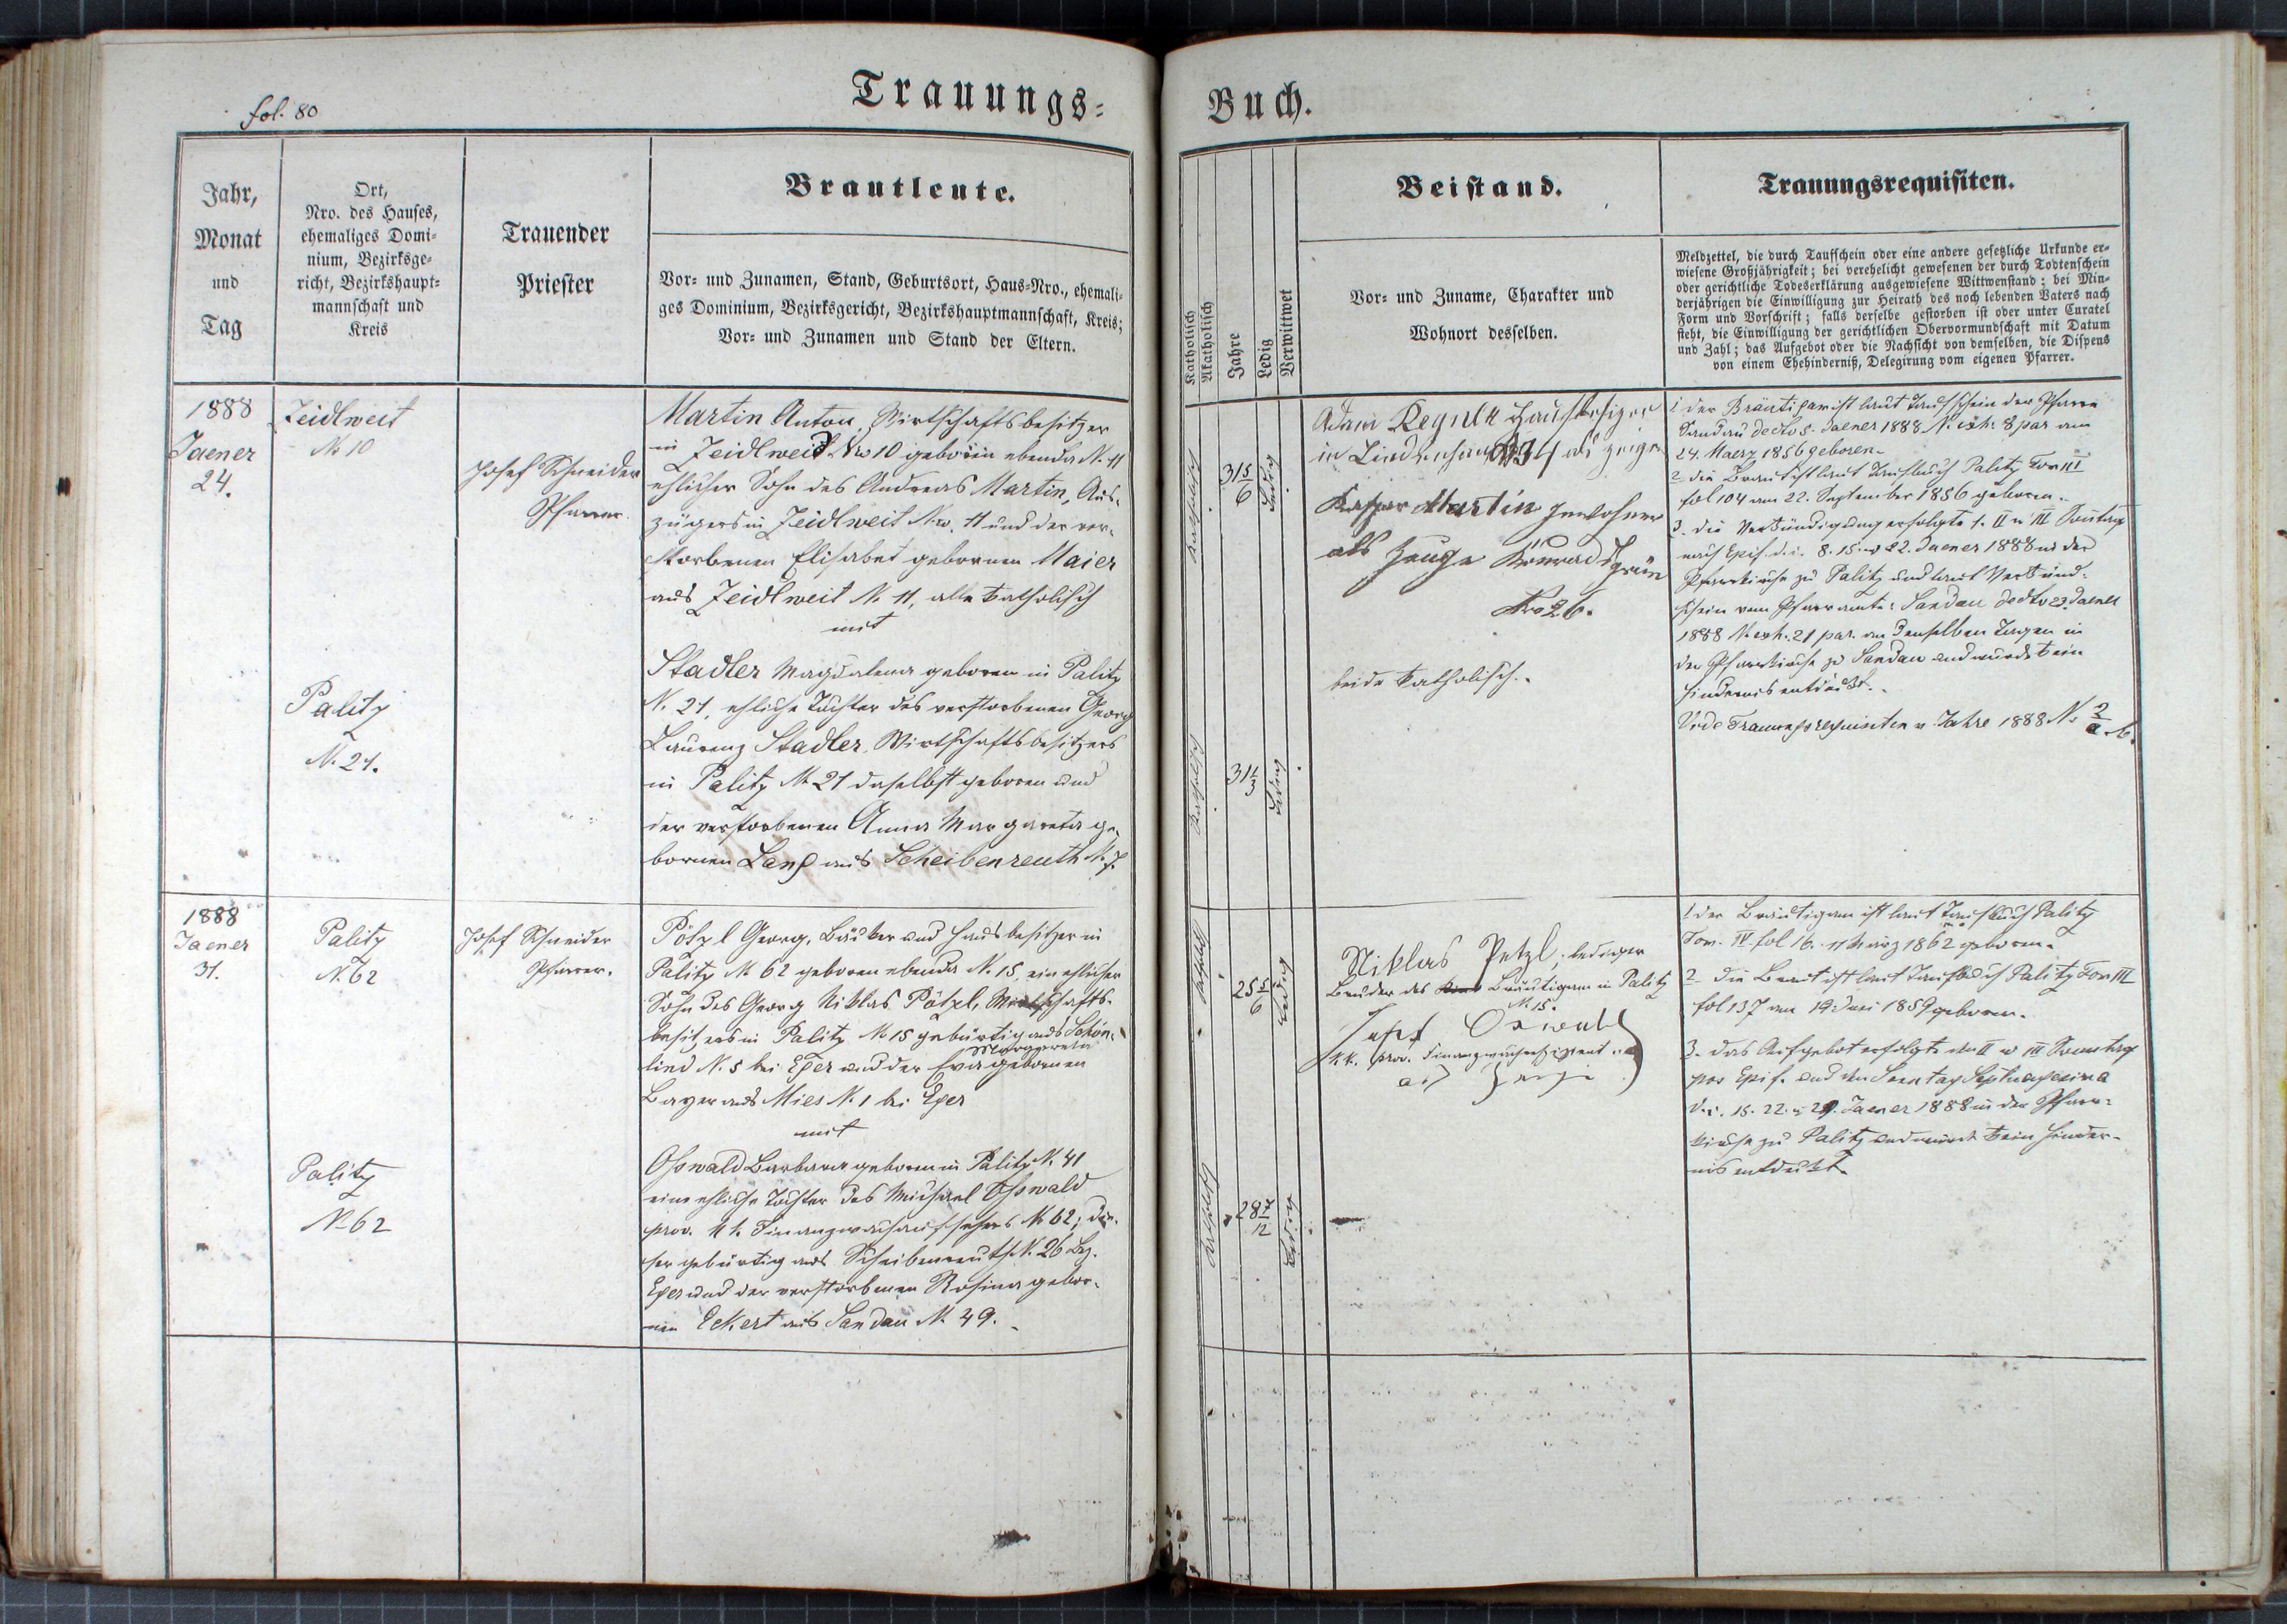 fol. 80
Trauungs-
Buch.
Jahr,
Monat
und
Tag
Ort,
Nro. des Hauses,
ehemaliges Domi-
nium, Bezirksge-
richt, Bezirkshaupt-
mannschaft und
Kreis
Trauender
Priester
Brautleute.
Vor- und Zunamen, Stand, Geburtsort, Haus-Nro., ehemali-
ges Dominium, Bezirksgericht, Bezirkshauptmannschaft, Kreis;
Vor- und Zunamen und Stand der Eltern.
Katholisch
Akatholisch
Jahre
Ledig
Verwittwet
Beistand.
Vor- und Zuname, Charakter und
Wohnort desselben.
Trauungsrequisiten.
Meldzettel, die durch Taufschein oder eine andere gesetzliche Urkunde er-
wiesene Großjährigkeit; bei verehelicht gewesenen der durch Todtenschein
oder gerichtliche Todeserklärung ausgewiesene Wittwenstand; bei Min-
derjährigen die Einwilligung zur Heirath des noch lebenden Vaters nach
Form und Vorschrift; falls derselbe gestorben ist oder unter Curatel
steht, die Einwilligung der gerichtlichen Obervormundschaft mit Datum
und Zahl; das Aufgebot oder die Nachsicht von demselben, die Dispens
von einem Ehehinderniß, Delegirung vom eigenen Pfarrer.
1888
Jaener
24.
Zeidlweit
N. 10
Palitz
N. 21.
Josef Schneider
Pfarrer.
Martin Anton, Wirtschaftsbesitzer
in Zeidlweid Nro 10 geboren ebenda N. 11
ehlicher Sohn des Andreas Martin, Aus-
zügers in Zeidlweit Nro. 11 und der ver-
storbenen Elisabet gebornen Maier
aus Zeidlweit N. 11, alle katholisch
mit
Stadler Magdalena geboren in Palitz
N. 21, ehliche Tochter des verstorbenen Georg
Laurenz Stadler, Wirtschaftsbesitzers
in Palitz N. 21 daselbst geboren und
der verstorbenen Anna Margareta ge-
bornen Lang aus Scheibenreuth N. 7.
katholisch
31 5/6
ledig
katholisch
31 1/3
ledig
Adam Hausbesitzer
in als Zeuge
Kaspar Martin Inwohner
als Zeuge Konradsgrün
Nro 26.
beide katholisch.
1 der Bräutigam ist laut Taufschein der Pfarre
Sandau dedto 5. Jaener 1888 N. exh. 8 par am
24. Maerz 1856 geboren.
2 die Braut ist laut Taufbuch Palitz Tom III
fol 104 am 22. September 1856 geboren.
3. die Verkündigung erfolgte I. II u III Sontag
nach Epif. d. i. 8. 15. u 22. Jaener 1888 in der
Pfarrkirche zu Palitz und laut Verkünd-
schein vom Pfarramte Sandau dedto 23. Jaener
1888 N. exh. 21 par. an denselben Tagen in
der Pfarrkirche zu Sandau und wurde kein
Hindernis entdeckt.
Vide Trauungsrequisiten v. Jahre 1888 N. 2/a. b.
1888
Jaener
31.
Palitz
N. 62
Palitz
N. 62
Josef Schneider
Pfarrer.
Pötzl Georg, Bäcker und Hausbesitzer in
Palitz N. 62 geboren ebenda N. 15, ein ehlicher
Sohn des Georg Niklas Pötzl, Wirtschafts-
besitzers in Palitz N. 15 gebürtig aus Schön-
lind N. 5 bei Eger und der Eva Margareta gebornen
Bayer aus Mies N. 1 bei Eger
mit
Oswald Barbara geboren in Palitz N. 41
eine ehliche Tochter des Michael Oswald
prov. k k. Finanzwachaufsehers N. 62; die-
ser gebürtig aus Scheibenreuth N. 26 Bez.
Eger und der verstorbenen Rosina gebor-
nen Eckert aus Sandau N. 49.
katholisch
25 5/6
ledig
katholisch
28 7/12
ledig
Niklas Petzl, lediger
Bruder des Bräutigam in Palitz
N. 15.
Josef Oswald
k.k. prov.
als Zeuge
1 der Bräutigam ist laut Taufbuch Palitz
Tom. IV fol 16. 11 März 1862 geboren.
2 die Braut ist laut Taufbuch Palitz Tom III
fol 137 am 19 Juni 1859 geboren.
3. das Aufgebot erfolgte den II u III Sonntag
pos Epif. und den Sonntag Septuagesima
d. i. 15. 22. u 29. Jaener 1888 in der Pfarr-
kirche zu Palitz und wurde kein Hinder-
nis entdeckt.